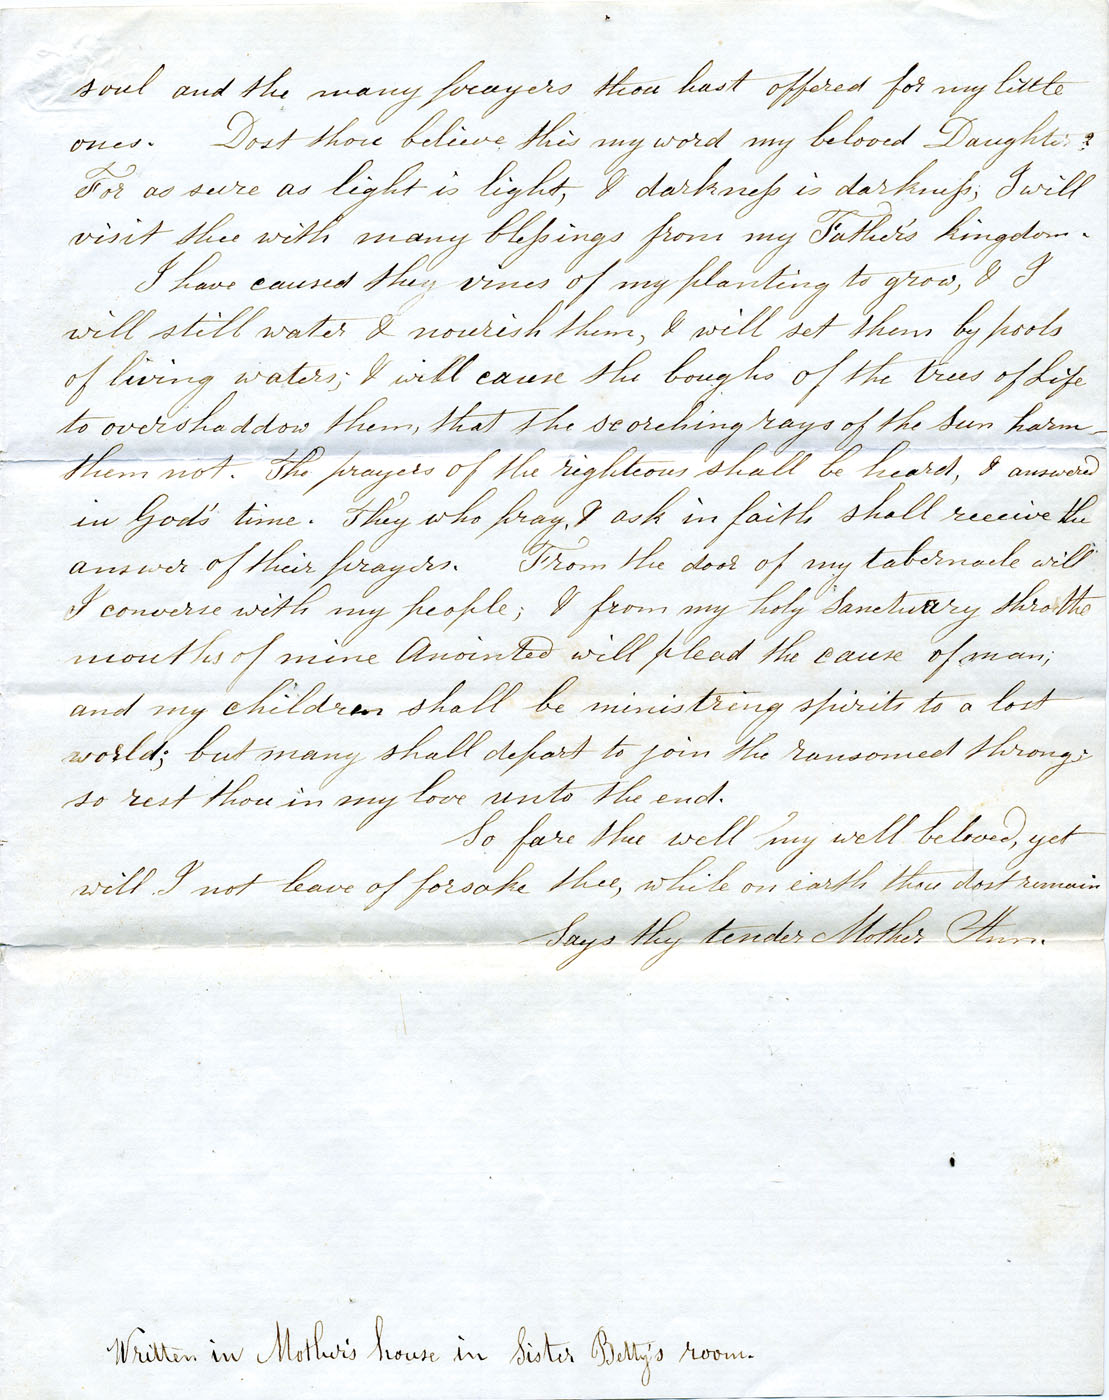 soul and the many prayers thou hast offered for my little
ones. Dost thou believe this my word my beloved Daughter?
For as sure as light is light, & darkness is darkness, I will
visit thee with many blessings from my Father's kingdom.
I have caused they vines of my planting to grow, & I
will still water & nourish them, & will set them by pools
of living waters; & will cause the boughs of the trees of Life
to overshaddow them, that the scorching rays of the sun harm
them not. The prayers of the righteous shall be heard, & answered
in God's time. They who pray, & ask in faith shall receive the
answer of their prayers. From the door of my tabernacle will
I converse with my people; & from my holy Sanctuary thro the
mouths of mine Anointed will plead the cause of man;
and my children shall be ministring spirits to a lost
world; but many shall depart to join the ransomed throng;
so rest thou in my love unto the end.
So fare thee well my well beloved, yet
will I not leave of forsake thee, while on earth thou dost remain
Says thy tender Mother Ann.
Written in Mother's house in Sister Betty's room.